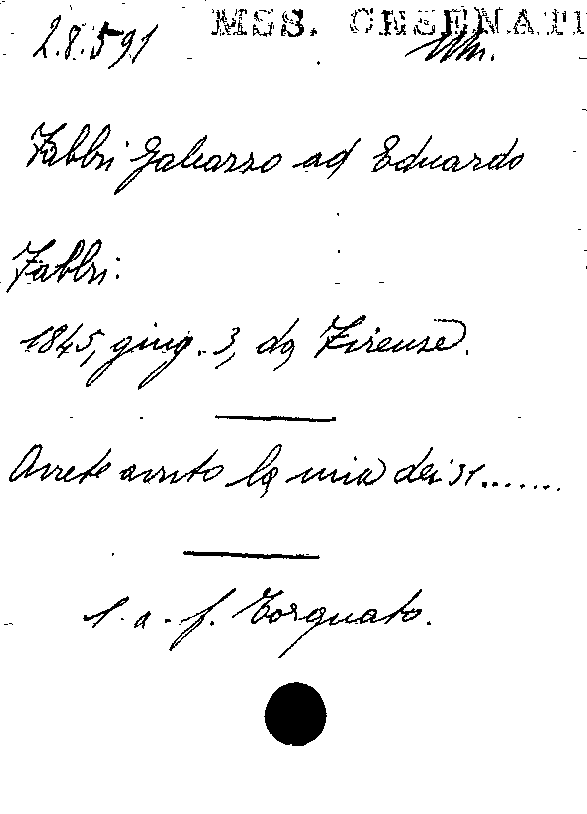 MSS. CESENATI
2.8.591
Fabbri Galeazzo ad Eduardo
Fabbri:
1845, giug. 3, da Firenze.
Avrete avuto la mia dei 31.......
l. a. f. Torquato.